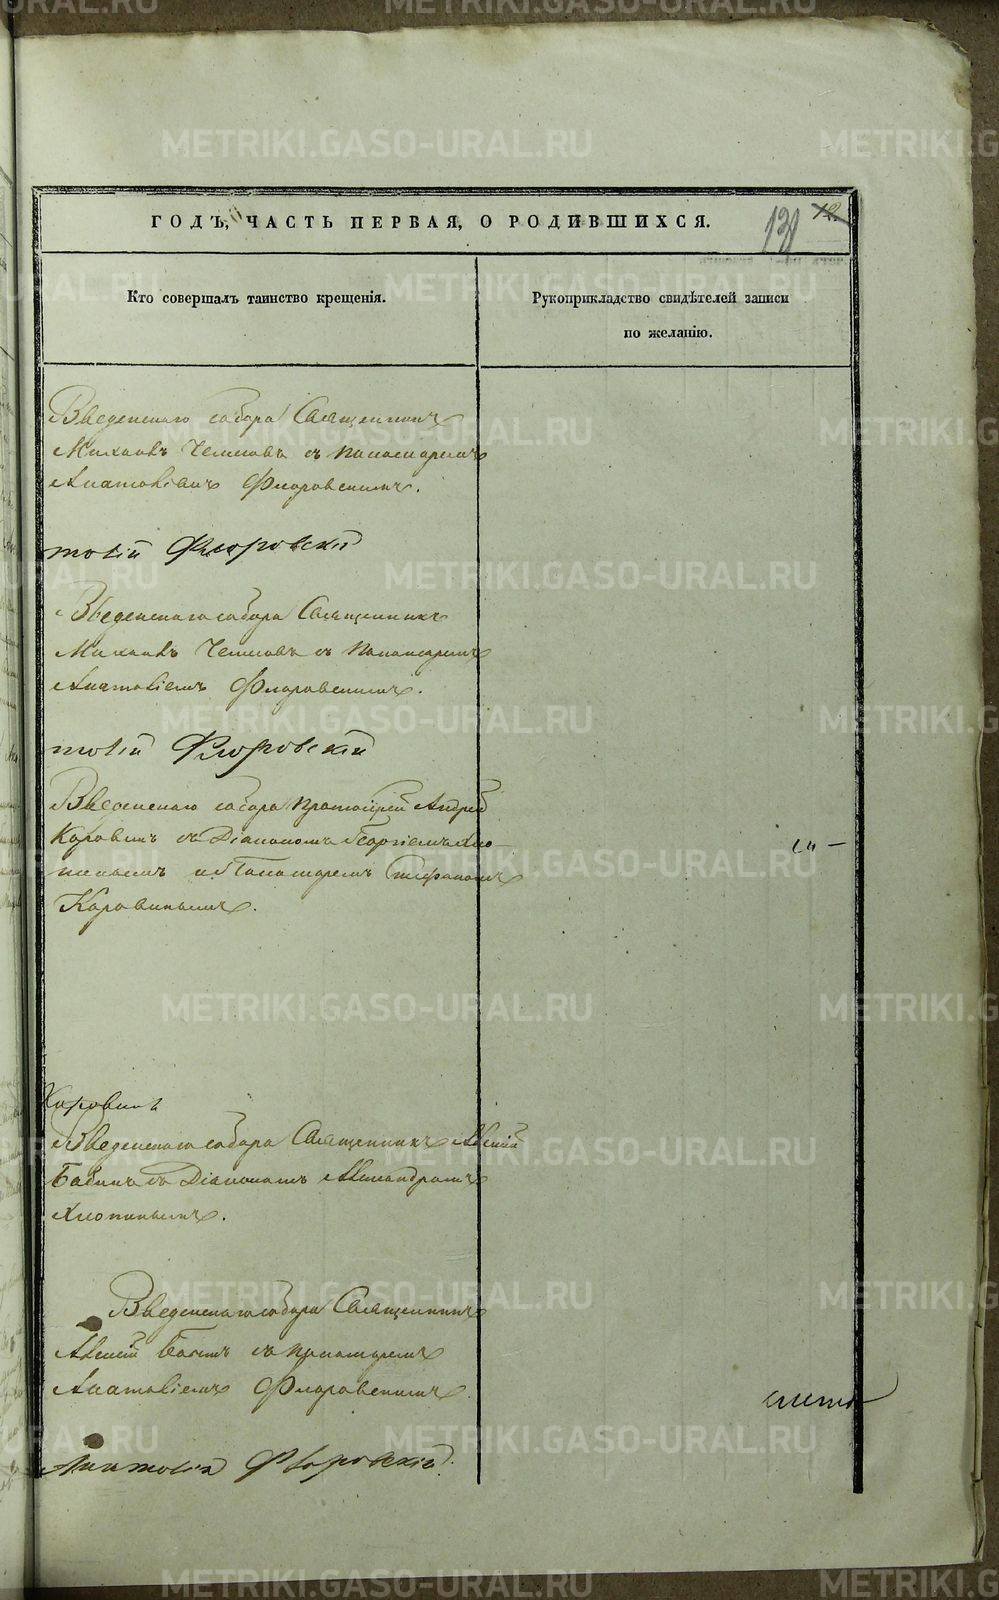 ГОДЪ, ЧАСТЬ ПЕРВАЯ, О РОДИВШИХСЯ.
12
Кто совершалъ таинство крещенія.
Рукоприкладство свидѣтелей записи
по желанію.
Введенскаго собора Священникъ
Михаилъ с пономаремъ
Анатоліемъ Флоровскимъ.
толій Флоровскій
Введенскаго собора Священникъ
Михаилъ с пономаремъ
Анатоліемъ Флоровскимъ.
толій Флоровскій
Введенскаго собора Протоіерей Андрей
Коровинъ съ Діакономъ Георгіемъ Хло-
пиным и Пономаремъ Стефаномъ
Коровинымъ.
Коровинъ
Введенскаго собора Священникъ Алексій
Бабинъ съ Діакономъ Александромъ
Хлопинымъ.
Введенскаго собора Священникъ
Алексій Бабинъ съ пономаремъ
Анатоліемъ Флоровскимъ
Анатолій Флоровскій.
METRIKI.GASO-URAL.RU